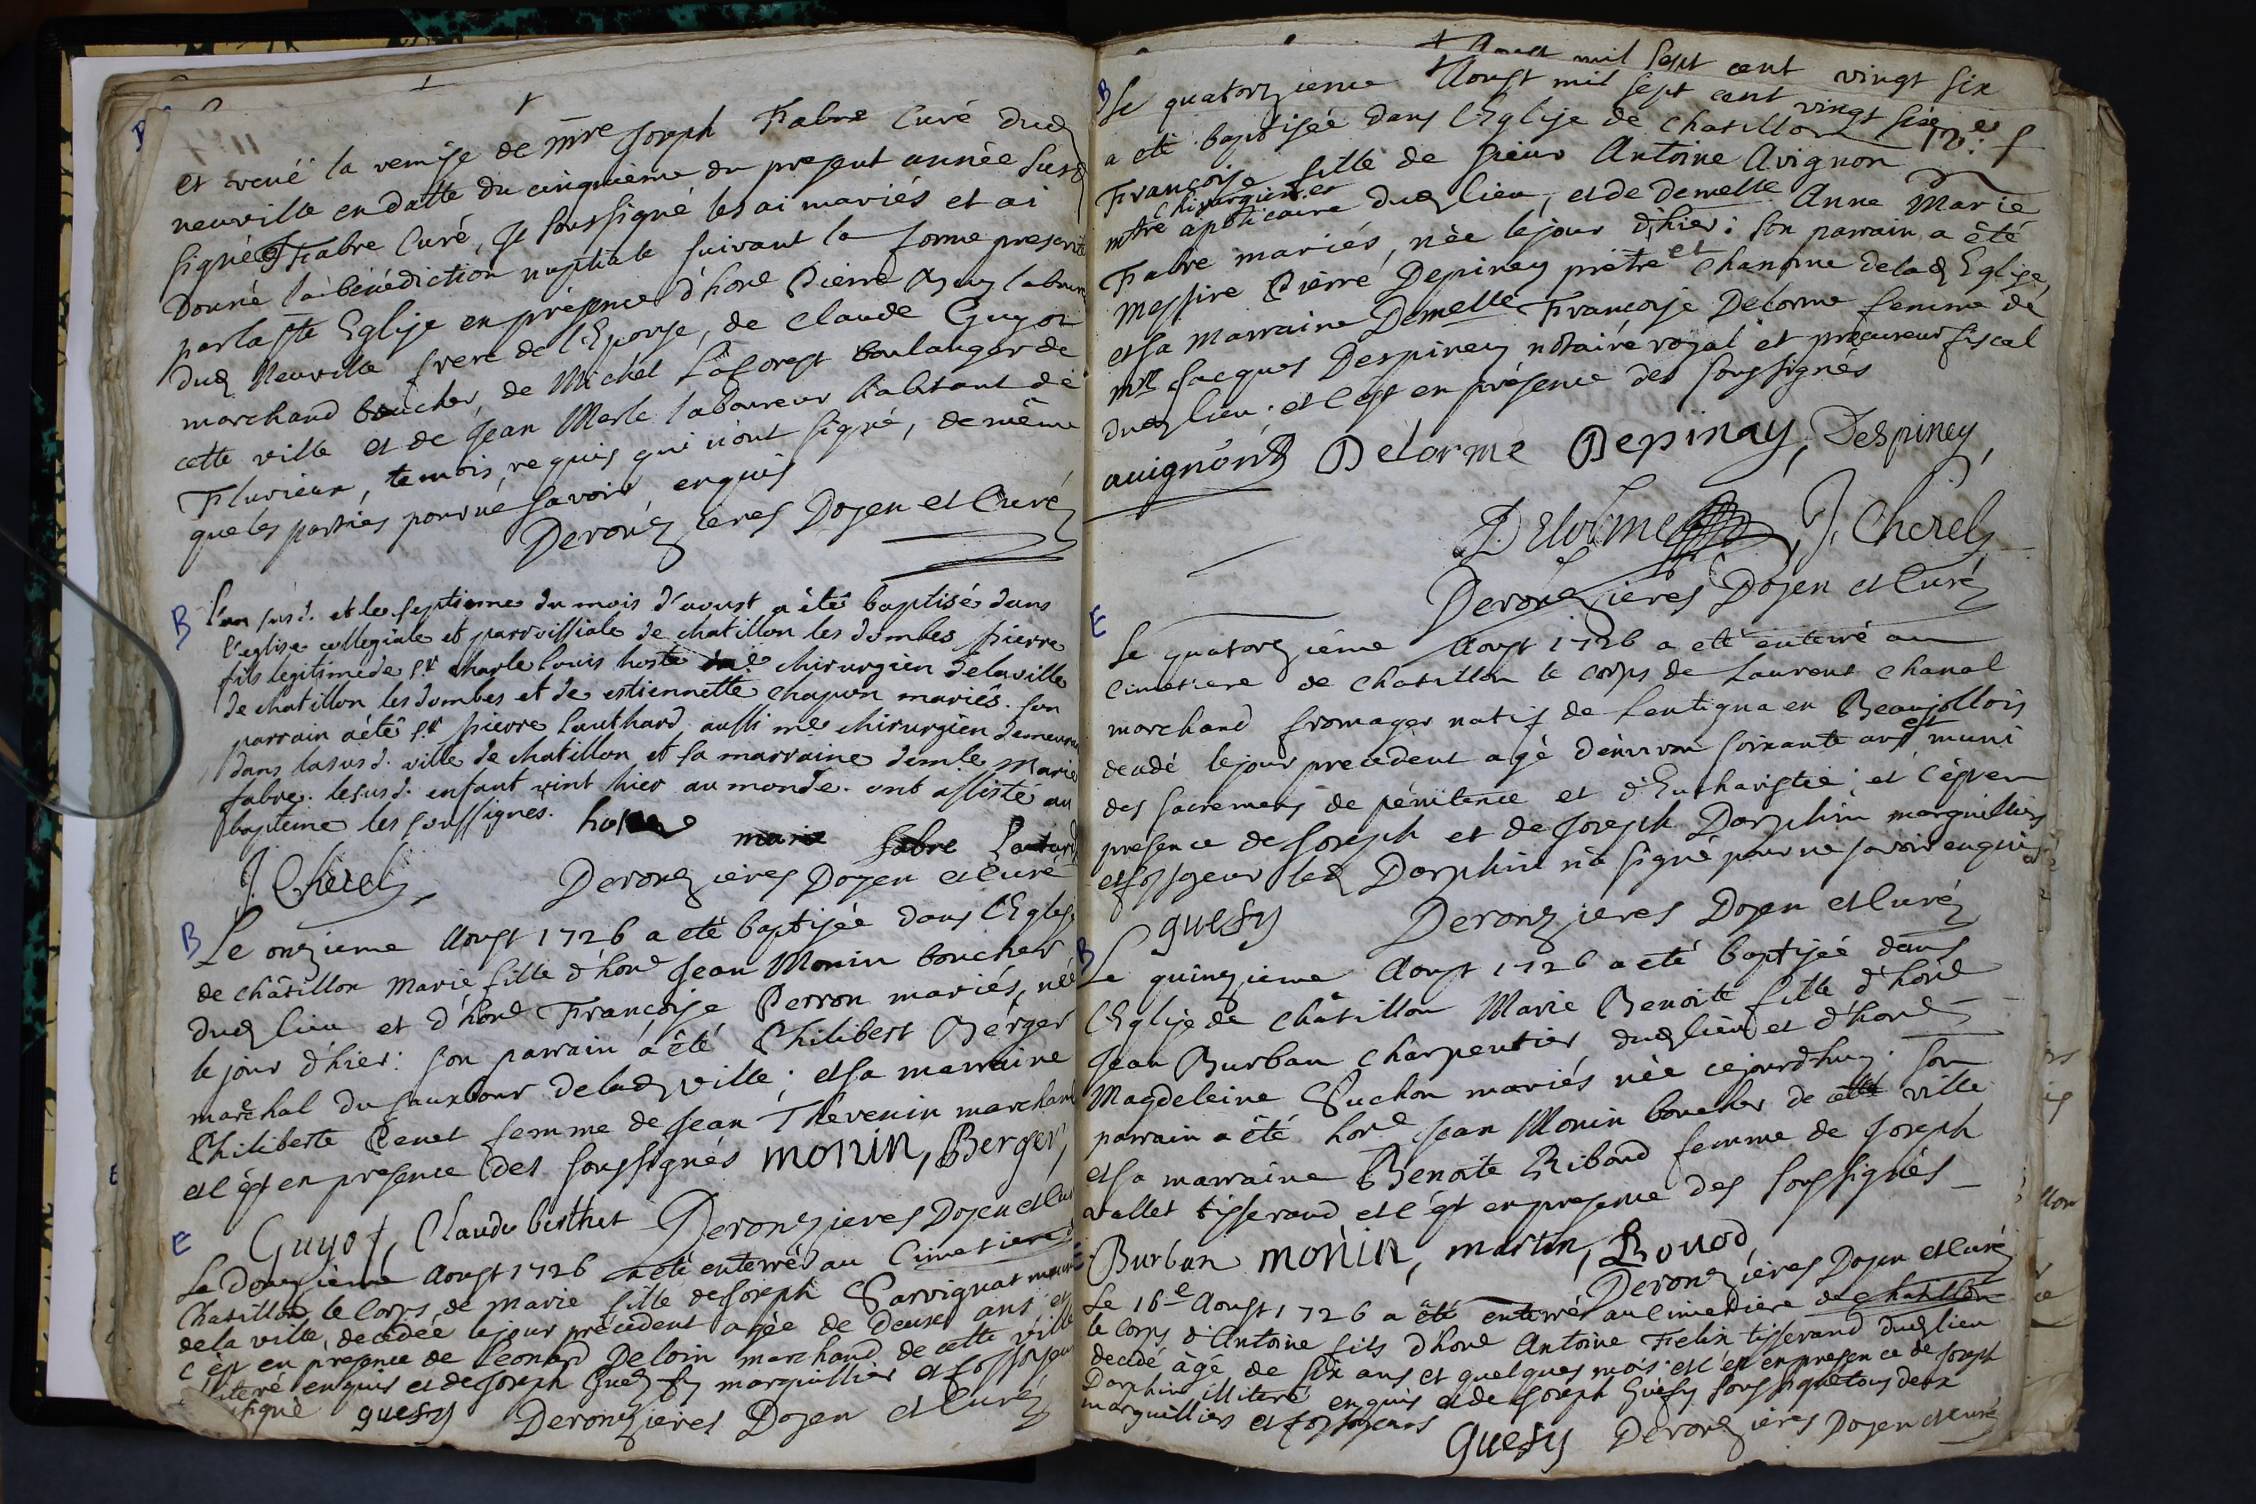 et veüe la remise de mre Joseph Fabre Curé dud
neuville en datte du cinquieme du present année susd
signée Fabre Curé, Je soussigné les ai mariés et ai
Donné la bénédiction nuptiale suivant la forme prescrite
par la ste Eglise en présence d'hone Pierre Guy laboureur
dud Neuville frere de l'Epouse, de Claude Guyot
marchand boucher, de Michel Laforest boulanger de
cette ville et de Jean Merle laboureur habitant de
Flurieux, temois requis qui n'ont signé, de même
que les parties pour ne savoir enquis
Deronzieres Doyen et Curé
B
L'an susd. et le septieme du mois d'aoust a èté baptisé dans
l'eglise collegiale et parroissiale de chatillon les dombes pierre
fils legitime de sr charle louis hoste me chirurgien de la ville
de chatillon les dombes et de estiennette chapon mariés. son
parrain a été sr pierre lauthard aussi me chirurgien demeurant
dans la susd. ville de chatillon et sa marraine demle Marie
fabre. lesusd. enfant vint hier au monde. ont assisté au
bapteme les soussignés. hoste
marie fabre Lautard
J. Cherel
Deronzieres Doyen et Curé
B
Le onzieme Aoust 1726 a eté baptisée dans l'Eglise
de châtillon Marie fille d'hone Jean Monin boucher
dud lieu et d'hone Françoise Perron mariés, née
le jour d'hier: son parrain a été Philibert Berger
marechal du fauxbour de lad ville; et sa marraine
Philiberte Penet femme de Jean Thévenin marchand
et c'est en presence des soussignés monin, Berger,
Guyot, Claude berthet Deronzieres Doyen et Curé
E
Le douzième Aoust 1726 a eté enterrée au Cimetiere de
Chatillon le Corps de Marie fille de Joseph Sarvignat
de la ville, decédée le jour précédent agée de Deux ans et
c'est en présence de Leonard Deloin marchand de cette ville
illiteré enquis et de Joseph Guesy marguillier et fossoyeur
signé guesy Deronzieres Doyen et Curé
Aoust mil sept cent vingt six
B
Le quatorzieme Aoust mil sept cent vingt sixe
a eté baptisée dans l'Eglise de chatillon
Françoise fille de sieur Antoine Avignon
chirurgien et
mtre apoticaire dud lieu, et de demelle Anne Marie
Fabre mariés, née le jour d'hier: son parrain a été
Messire Pierre Depiney prêtre et Chanoine de lad Eglise,
et sa marraine Demelle Françoise Delorme femme de
mre Jacques Despiney notaire royal et procureur fiscal
dud lieu. et c'est en présence des soussignés
avignon Delorme Depinay, Despiney,
Delorme, J. Cherel
Deronzieres Doyen et Curé
E
Le quatorzieme Aoust 1726 a eté enterré au
Cimetiere de Chatillon le corps de Laurent Chanal
marchand fromager natif de Lentigna en Beaujollois
decedé le jour precedent agé d'environ soixante ans et muni
des sacremens de pénitence et d'Eucharistie; et c'est en
presence de Joseph et de Joseph Dorphin marguilliers
et fossoyeur led Dorphin n'a signé pour ne savoir enquis
guesy Deronzieres Doyen et Curé
B
Le quinzieme Aoust 1726 a eté baptisée dans
l'Eglise de châtillon Marie Benoite fille d'hone
Jean Burban charpentier dud lieu et d'hone
Magdeleine Puchon mariés née cejourd'huy. son
parrain a été hone Jean Monin boucher de cette ville
et sa marraine Benoite Riboud femme de Joseph
vallet tisserand et c'est en presence des soussignés
Burban monin, martin, Bouod
Deronzieres Doyen et Curé
Le 16e Aoust 1726 a été enterré au Cimetiere de chatillon
le corps d'Antoine fils d'hone Antoine Felix tisserand dud lieu
decedé âgé de six ans et quelques mois et c'est en presence de Joseph
Dorphin illiteré enquis et de Joseph Guesy soussigné tous deux
marguilliers et fossoyeurs
guesy Deronzieres Doyen et Curé